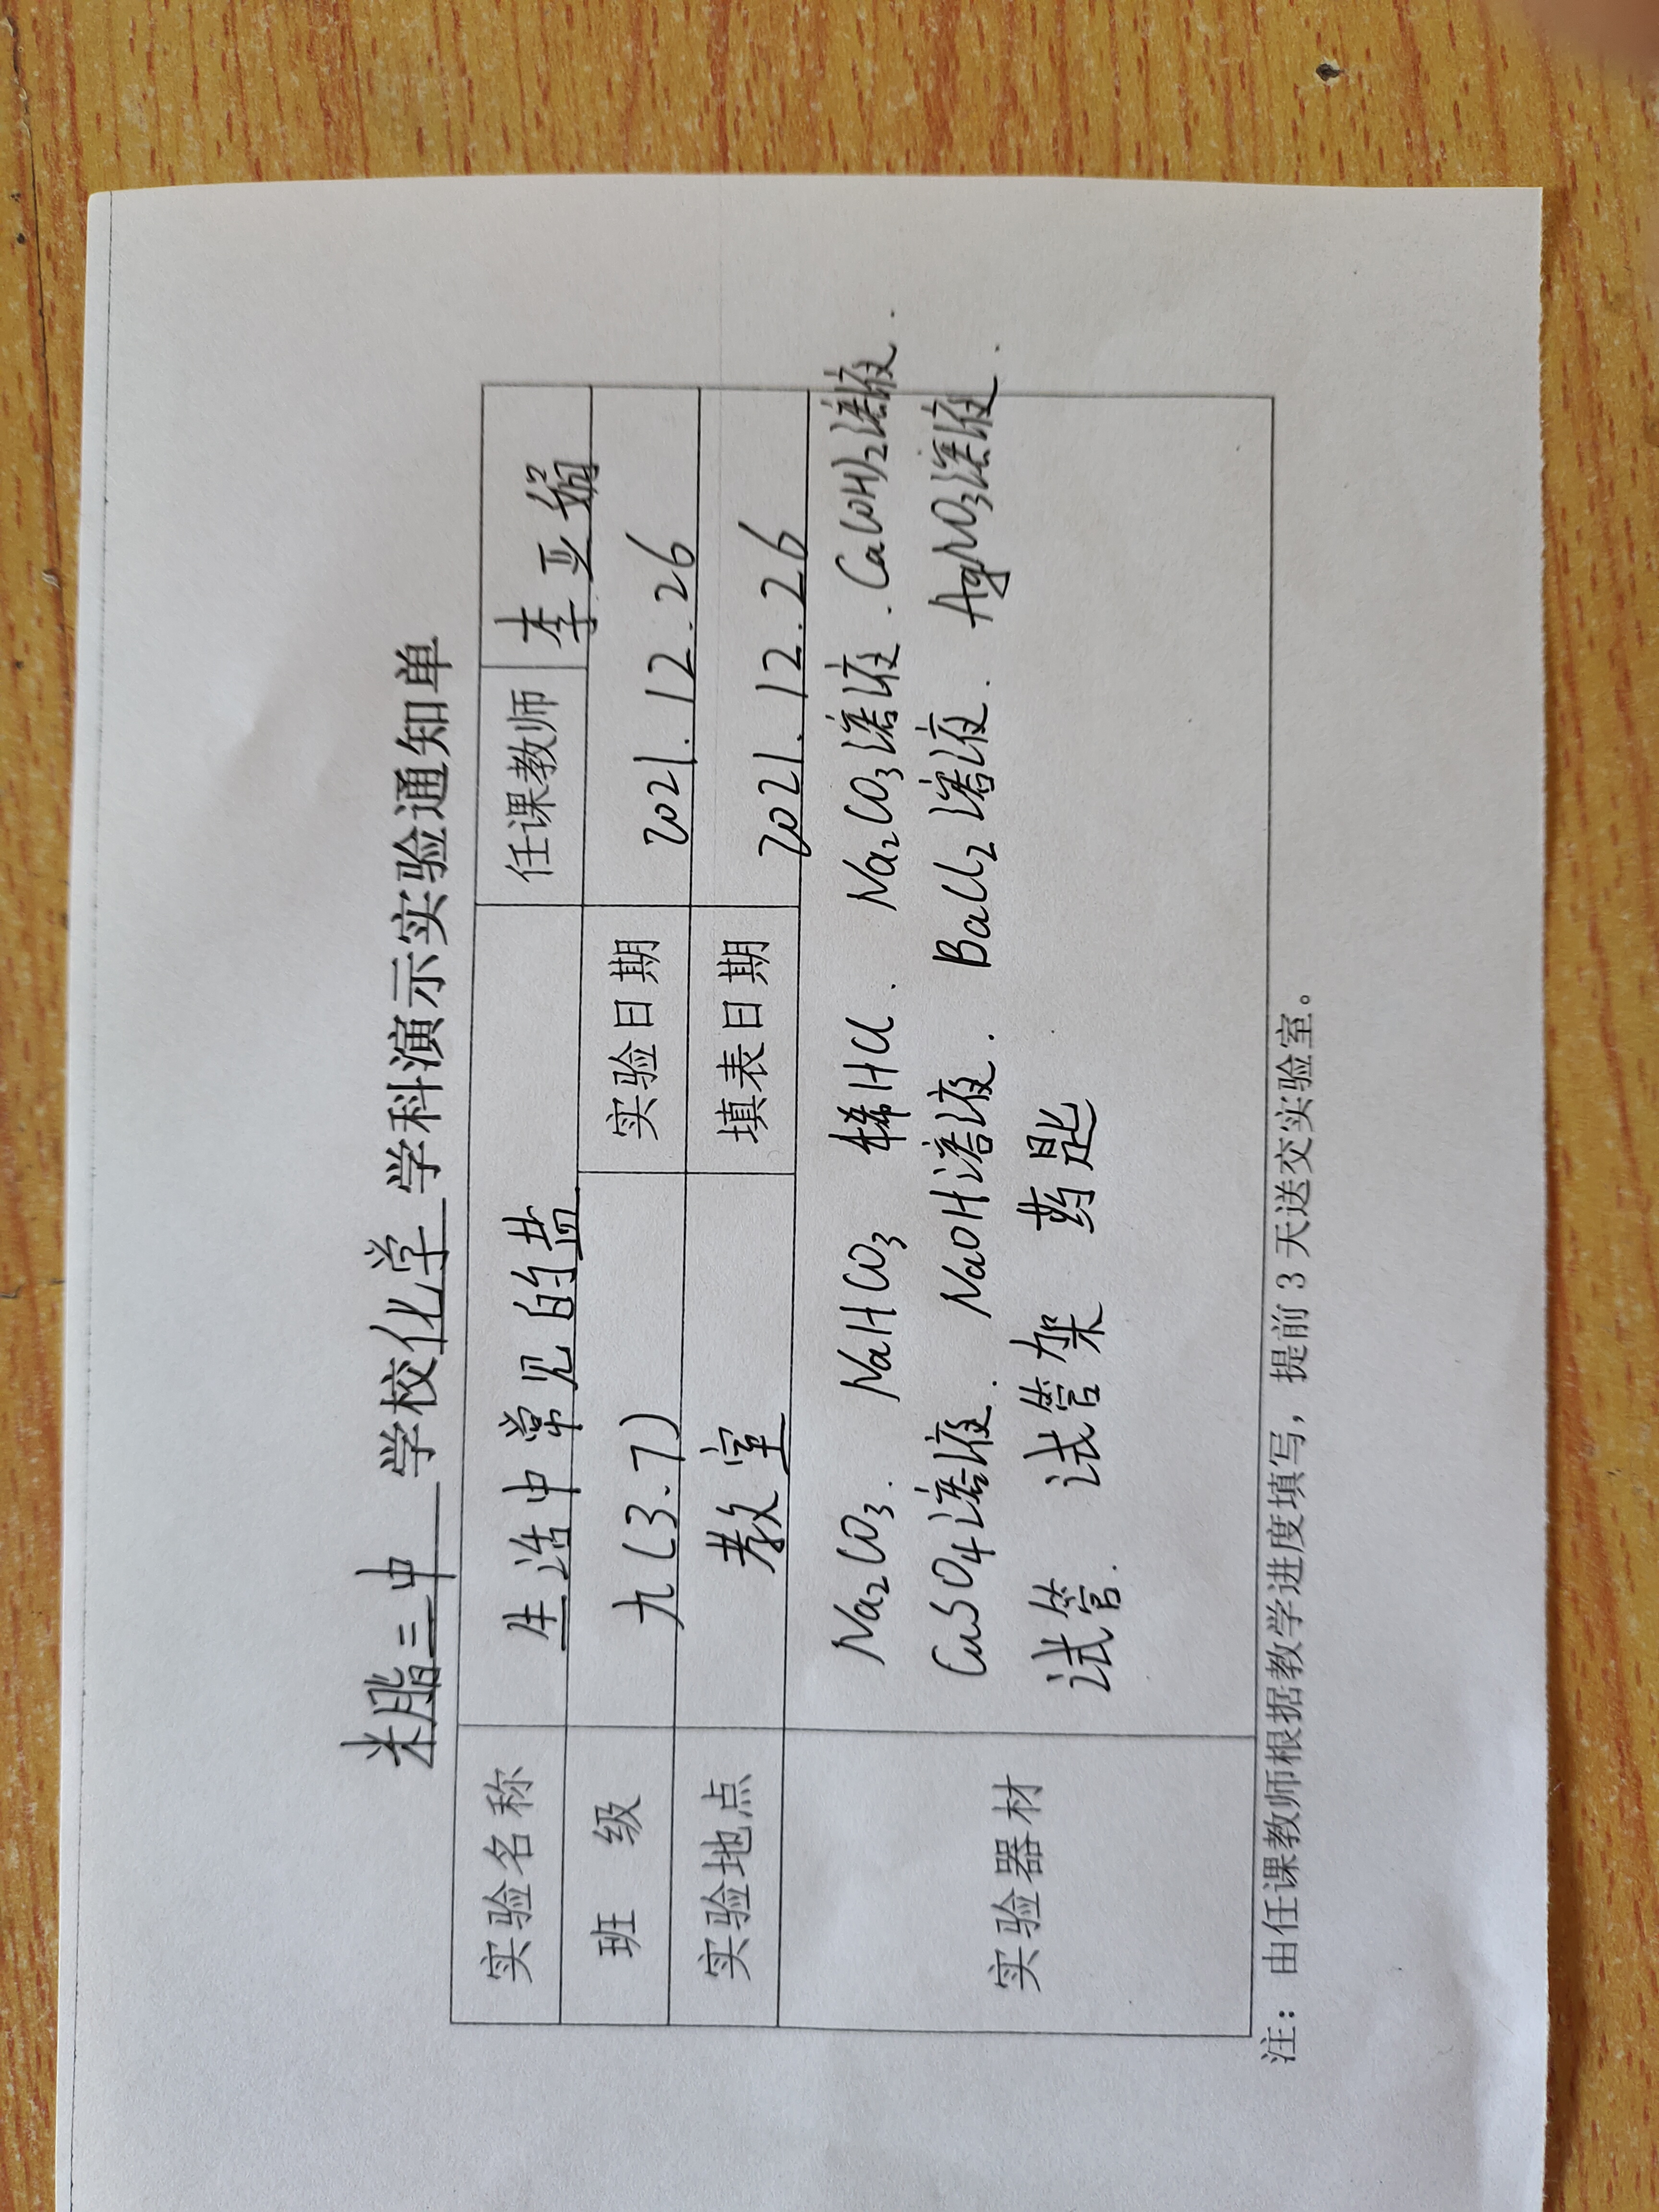 米脂三中 学校化学 学科演示实验通知单
实验名称 生活中常见的盐 任课教师 李亚娟
班 级 九(3.7) 实验日期 2021.12.26
实验地点 教室 填表日期 2021.12.26
实验器材
Na₂CO₃. NaHCO₃ 稀HCl. Na₂CO₃溶液. Ca(OH)₂溶液.
CuSO₄溶液. NaOH溶液. BaCl₂溶液. AgNO₃溶液.
试管. 试管架 药匙
注：由任课教师根据教学进度填写，提前 3 天送交实验室。